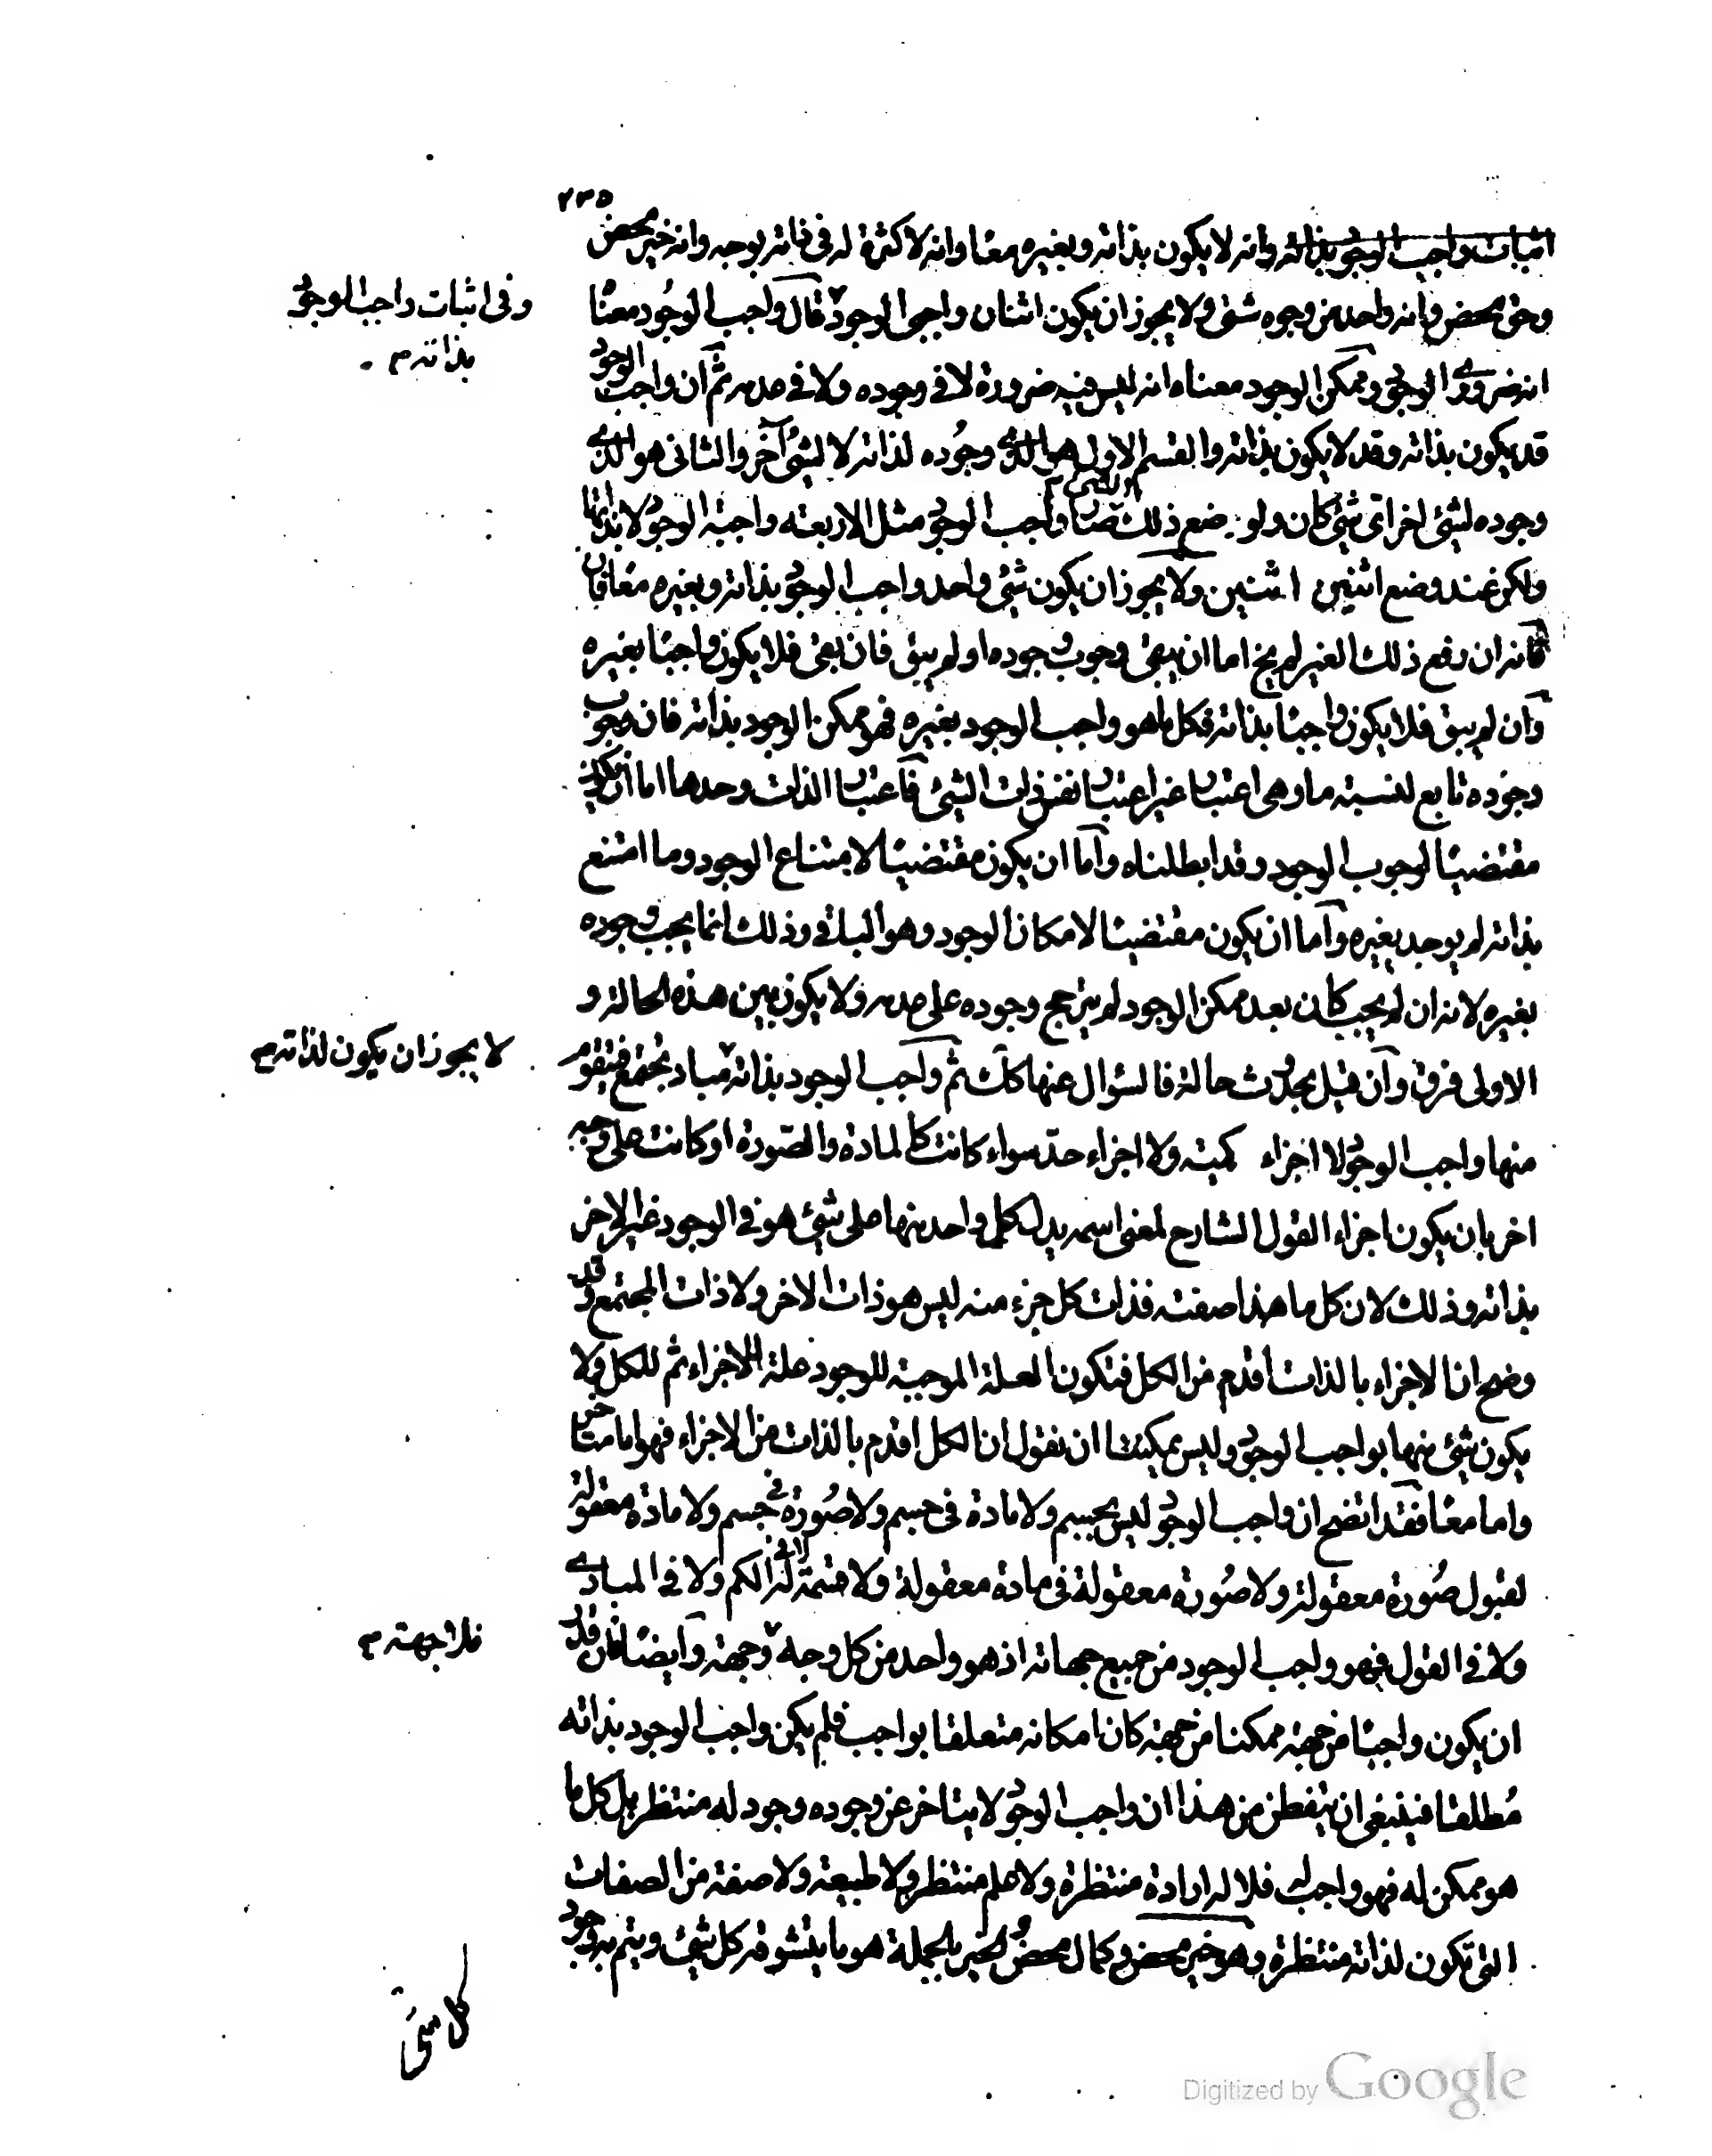 ٢٣٥
اثبات واجب الوجود بذاته وانه لا يكون بذاته وبغيره معًا وانه لا كثرة له فى ذاته بوجه وانه خير محض
وحق محض وانه واحد من وجوه شتى ولا يجوز ان يكون اثنان واجبى الوجود قال واجب الوجود معنا
وفى اثبات واجب الوجود
بذاته م
انه ضرورى الوجود وممكن الوجود معناه انه ليس فيه ضرورة لا فى وجوده ولا فى عدمه ثم ان واجب الوجود
قد يكون بذاته وقد لا يكون بذاته والقسم الاول هو الذى وجوده لذاته لا لشئ آخر والثانى هو الذى
وجوده لشئ اخر اى شئ كان ولو وضع ذلك الشئ صار واجب الوجود مثل الاربعة واجبة الوجود لا بذاتها
ولكن عند وضع اثنين اثنين ولا يجوز ان يكون شئ واحد واجب الوجود بذاته وبغيره معًا فان
فانه ان رفع ذلك الغير لم يخ اما ان يبقى وجوب وجوده او لم يبق فان بقى فلا يكون واجبًا بغيره
وان لم يبق فلا يكون واجبًا بذاته فكل ما هو واجب الوجود بغيره فهو ممكن الوجود بذاته فان وجوب
وجوده تابع لنسبة ما وهى اعتبار غير اعتبار نفس ذات الشئ فاعتبار الذات وحدها اما ان يكون
مقتضيًا لوجوب الوجود وقد ابطلناه واما ان يكون مقتضيًا لامتناع الوجود وما امتنع
بذاته لم يوجد بغيره واما ان يكون مقتضيًا لامكان الوجود وهو الباقى وذلك انما يجب وجوده
بغيره لانه ان لم يجب كان بعد ممكن الوجود لم يترجح وجوده على عدمه ولا يكون بين هذه الحالة و
الاولى فرق وان قيل يحدث حالة فالسؤال عنها كك ثم واجب الوجود بذاته مباد تجتمع فتقوم
لا يجوز ان يكون لذاته م
منها واجب الوجود لا اجزاء كمية ولا اجزاء حدّ سواء كانت كالمادة والصّورة او كانت على وجه
اخر بان يكون اجزاء القول الشارح لمعنى اسمه يدل كل واحد منها على شئ هو فى الوجود غير الاخر
بذاته وذلك لان كل ما هذا صفته فذات كل جزء منه ليس هو ذات الاخر ولا ذات المجتمع وقد
وضح ان الاجزاء بالذات اقدم من الكل فتكون العلة الموجبة للوجود علة للاجزاء ثم للكل ولا
يكون شئ منها بواجب الوجود وليس يمكننا ان نقول ان الكل اقدم بالذات من الاجزاء فهو اما متاخر
واما معًا فقد اتضح ان واجب الوجود ليس بجسم ولا مادة فى جسم ولا صورة فى جسم ولا مادة معقولة
لقبول صورة معقولة ولا صورة معقولة فى مادة معقولة ولا قسمة له لا فى الكم ولا فى المبادى
ولا فى القول فهو واجب الوجود من جميع جهاته اذ هو واحد من كل وجه وجهة وايضًا فان قدر
فلا جهة م
ان يكون واجبًا من جهة ممكنا من جهة كان امكانه متعلقا بواجب فلم يكن واجب الوجود بذاته
مطلقا فينبغى ان يتفطن من هذا ان واجب الوجود لا يتاخر عن وجوده وجود له منتظر بل كل ما
هو ممكن له فهو واجب له فلا له ارادة منتظرة ولا علم منتظر ولا طبيعة ولا صفة من الصفات
التى تكون لذاته منتظرة وهو خير محض وكمال محض والخير بالجملة هو ما يتشوقه كل شئ ويتم به وجود
كل شئ
Digitized by Google